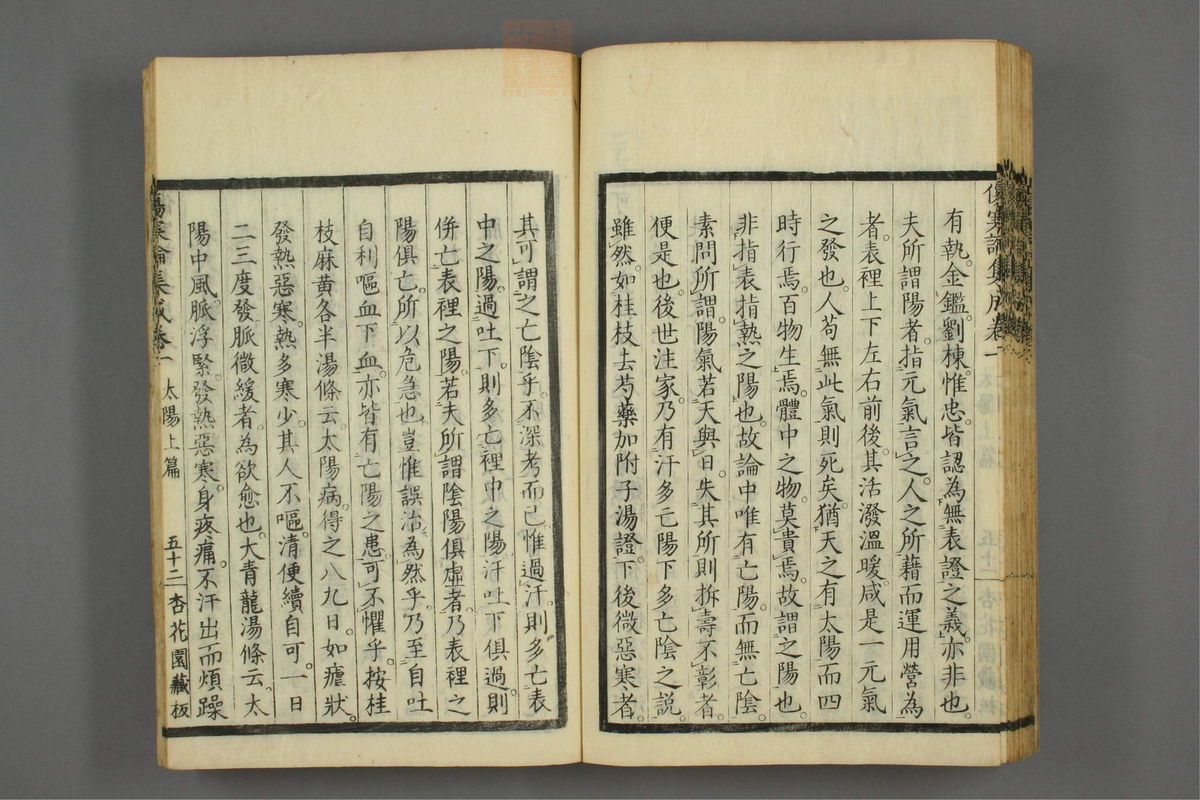 傷寒論集成卷一
有執金鑑劉棟惟忠皆認為無表證之義亦非也
夫所謂陽者指元氣言之人之所藉而運用營為
者表裡上下左右前後其活潑溫暖咸是一元氣
之發也人苟無此氣則死矣猶天之有太陽而四
時行焉百物生焉體中之物莫貴焉故謂之陽也
非指表指熱之陽也故論中唯有亡陽而無亡陰
素問所謂陽氣若天與日失其所則折壽不彰者
便是也後世注家乃有汗多亡陽下多亡陰之説
雖然如桂枝去芍藥加附子湯證下後微惡寒者
其可謂之亡陰乎不深考而已惟過汗則多亡表
中之陽過吐下則多亡裡中之陽汗吐下俱過則
併亡表裡之陽若夫所謂陰陽俱虛者乃表裡之
陽俱亡所以危急也豈惟誤治為然乎乃至自吐
自利嘔血下血亦皆有亡陽之患可不懼乎按桂
枝麻黃各半湯條云太陽病得之八九日如瘧狀
發熱惡寒熱多寒少其人不嘔清便續自可一日
二三度發脈微緩者為欲愈也大青龍湯條云太
陽中風脈浮緊發熱惡寒身疼痛不汗出而煩躁
傷寒論集成卷一 太陽上篇 五十二 杏花園藏板